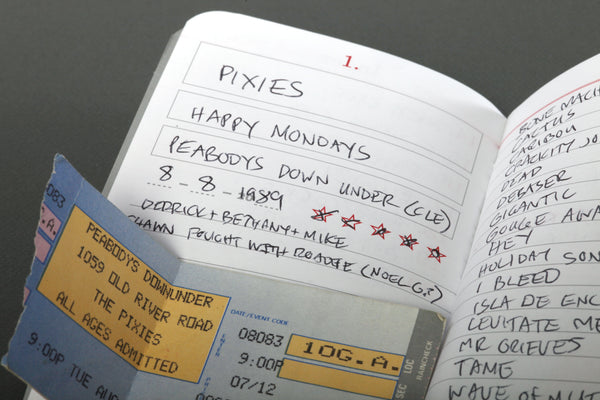 1.
PIXIES
HAPPY MONDAYS
PEABODYS DOWN UNDER (CLE)
8 - 8 - 1989
DERRICK + BETHANY + MIKE
SHAWN FOUGHT WITH ROADIE (NOEL G?)
BONE MACH
CACTUS
CARIBOU
CRACKITY JO
DEAD
DEBASER
GIGANTIC
GOUGE AWA
HEY
HOLIDAY SON
I BLEED
ISLA DE ENC
LEVITATE ME
MR GRIEVES
TAME
WAVE OF MUT
083
G.A.
PEABODYS DOWNUNDER
1059 OLD RIVER ROAD
THE PIXIES
ALL AGES ADMITTED
9:00P TUE AUG
DATE/EVENT CODE
08083
9:00P
07/12
10G.A.
SEC
LOC
RAINCHECK